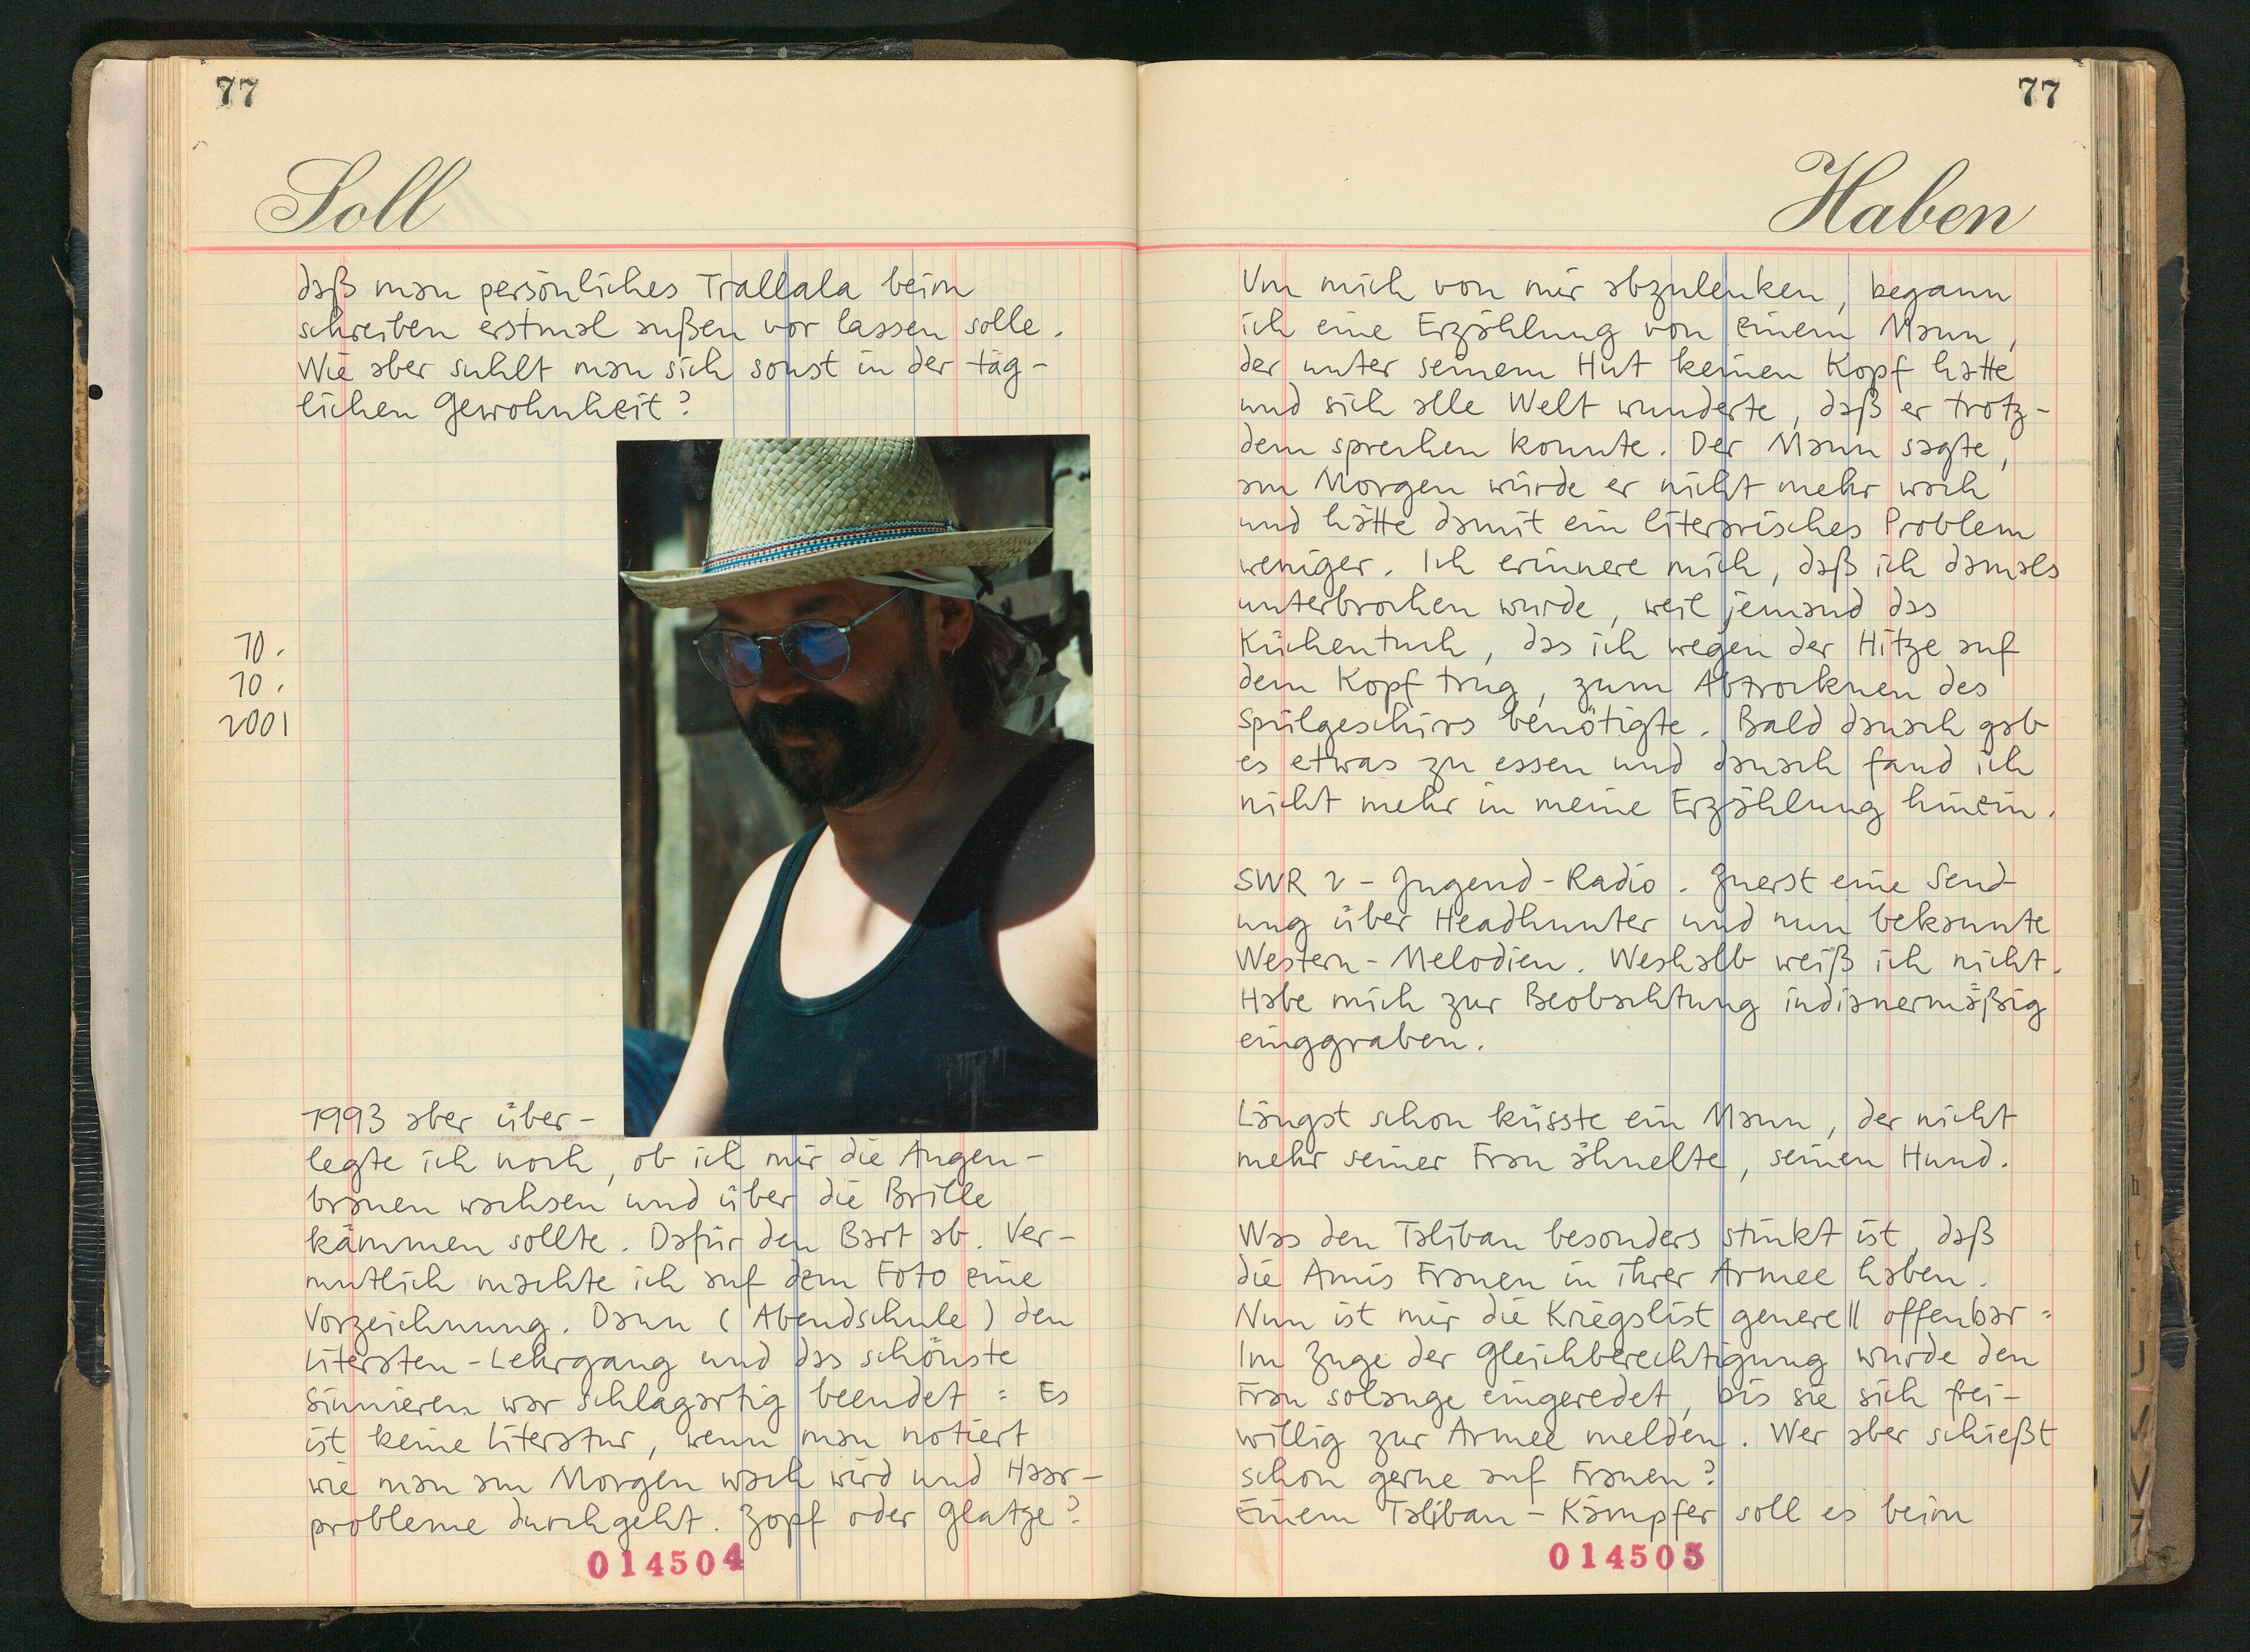 77
Soll
daß man persönliches Trallala beim
schreiben erstmal außen vor lassen solle.
Wie aber suhlt man sich sonst in der täg-
lichen Gewohnheit?
10.
10.
2001
1993 aber über-
legte ich noch, ob ich mir die Augen-
brauen wachsen und über die Brille
kämmen sollte. Dafür den Bart ab. Ver-
mutlich machte ich auf dem Foto eine
Vorzeichnung. Dann (Abendschule) den
Literaten-Lehrgang und das schönste
Sinnieren war schlagartig beendet: Es
ist keine Literatur, wenn man notiert
wie man am Morgen wach wird und Haar-
probleme durchgeht. Zopf oder Glatze?
014504
77
Haben
Um mich von mir abzulenken, begann
ich eine Erzählung von einem Mann,
der unter seinem Hut keinen Kopf hatte
und sich alle Welt wunderte, daß er trotz-
dem sprechen konnte. Der Mann sagte,
am Morgen würde er nicht mehr wach
und hätte damit ein literarisches Problem
weniger. Ich erinnere mich, daß ich damals
unterbrochen wurde, weil jemand das
Küchentuch, das ich wegen der Hitze auf
dem Kopf trug, zum Abtrocknen des
Spülgeschirrs benötigte. Bald danach gab
es etwas zu essen und danach fand ich
nicht mehr in meine Erzählung hinein.
SWR 2 - Jugend-Radio. Zuerst eine Send-
ung über Headhunter und nun bekannte
Western-Melodien. Weshalb weiß ich nicht.
Habe mich zur Beobachtung indianermäßig
einggraben.
Längst schon küsste ein Mann, der nicht
mehr seiner Frau ähnelte, seinen Hund.
Was den Taliban besonders stinkt ist, daß
die Amis Frauen in ihrer Armee haben.
Nun ist mir die Kriegslist generell offenbar:
Im Zuge der Gleichberechtigung wurde den
Frau solange eingeredet, bis sie sich frei-
willig zur Armee melden. Wer aber schießt
schon gerne auf Frauen?
Einem Taliban-Kämpfer soll es beim
014505